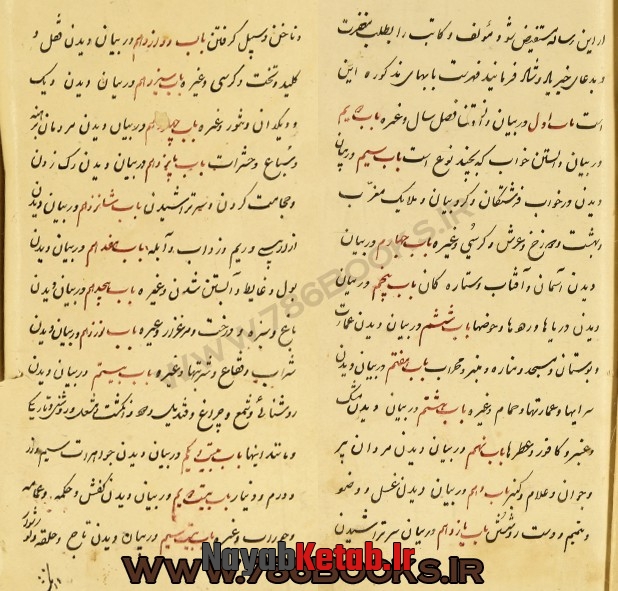 ازین رساله مستفیض شود مؤلف و کاتب را بطلب مغفرت
و بدعای خیر یاد و شاد فرمایند فهرست بابهای مذکوره این
است باب اول در بیان دانستن فصل سال و غیره باب دیم
در بیان دانستن خواب که بچند نوع است باب سیم در بیان
دیدن در خواب فرشتگان و کروبیان و ملایک مقرب
و بهشت و دوزخ و عرش و کرسی و غیره باب چهارم در بیان
دیدن آسمان و آفتاب و ستاره کان باب پنجم در بیان
دیدن دریاها و رودها و حوضها باب ششم در بیان دیدن عمارت
و بوستان و مسجد و مناره و منبر و محراب باب هفتم در بیان دیدن
سرایها و عمارتها و حمام و غیره باب هشتم در بیان دیدن مشک
و عنبر و کافور و عطرها باب نهم در بیان دیدن مردان پیر
و جوان و غلام و کنیز باب دهم در بیان دیدن غسل و وضو
و تیمم و دست رو شستن باب یازدهم در بیان سر تراشیدن
و ناخن و سبیل گرفتن باب دوازدهم در بیان دیدن قفل و
کلید و تخت و کرسی و غیره باب سیزدهم در بیان دیدن دیک
و دیکدان و تنور و غیره باب چهاردهم در بیان دیدن مردمان برهنه
و سباع و حشرات باب پانزدهم در بیان دیدن رک زدن
و حجامت کردن و سر تراشیدن باب شانزدهم در بیان دیدن
و ریم و زرداب و آبله باب هفدهم در بیان دیدن
بول و غایط و آبستن شدن و غیره باب هجدهم در بیان دیدن
باغ و سبزه و درخت و مرغزار و غیره باب نوزدهم در بیان دیدن
شراب و فقاع و شربتها و غیره باب بیستم در بیان دیدن
روشنائی و شمع و چراغ و قندیل و انکشت و مشعل و روشنی و تاریکی
و مانند اینها باب بیست و یکم در بیان دیدن جواهرات سیم و زر
و درم و دینار باب بیست و دیم در بیان دیدن کفش و چکمه و عمامه
و جوراب و غیره باب بیست و سیم در بیان دیدن تاج و حلقه و
WWW.786BOOKS.IR
NayabKetab.Ir
WWW.786BOOKS.IR